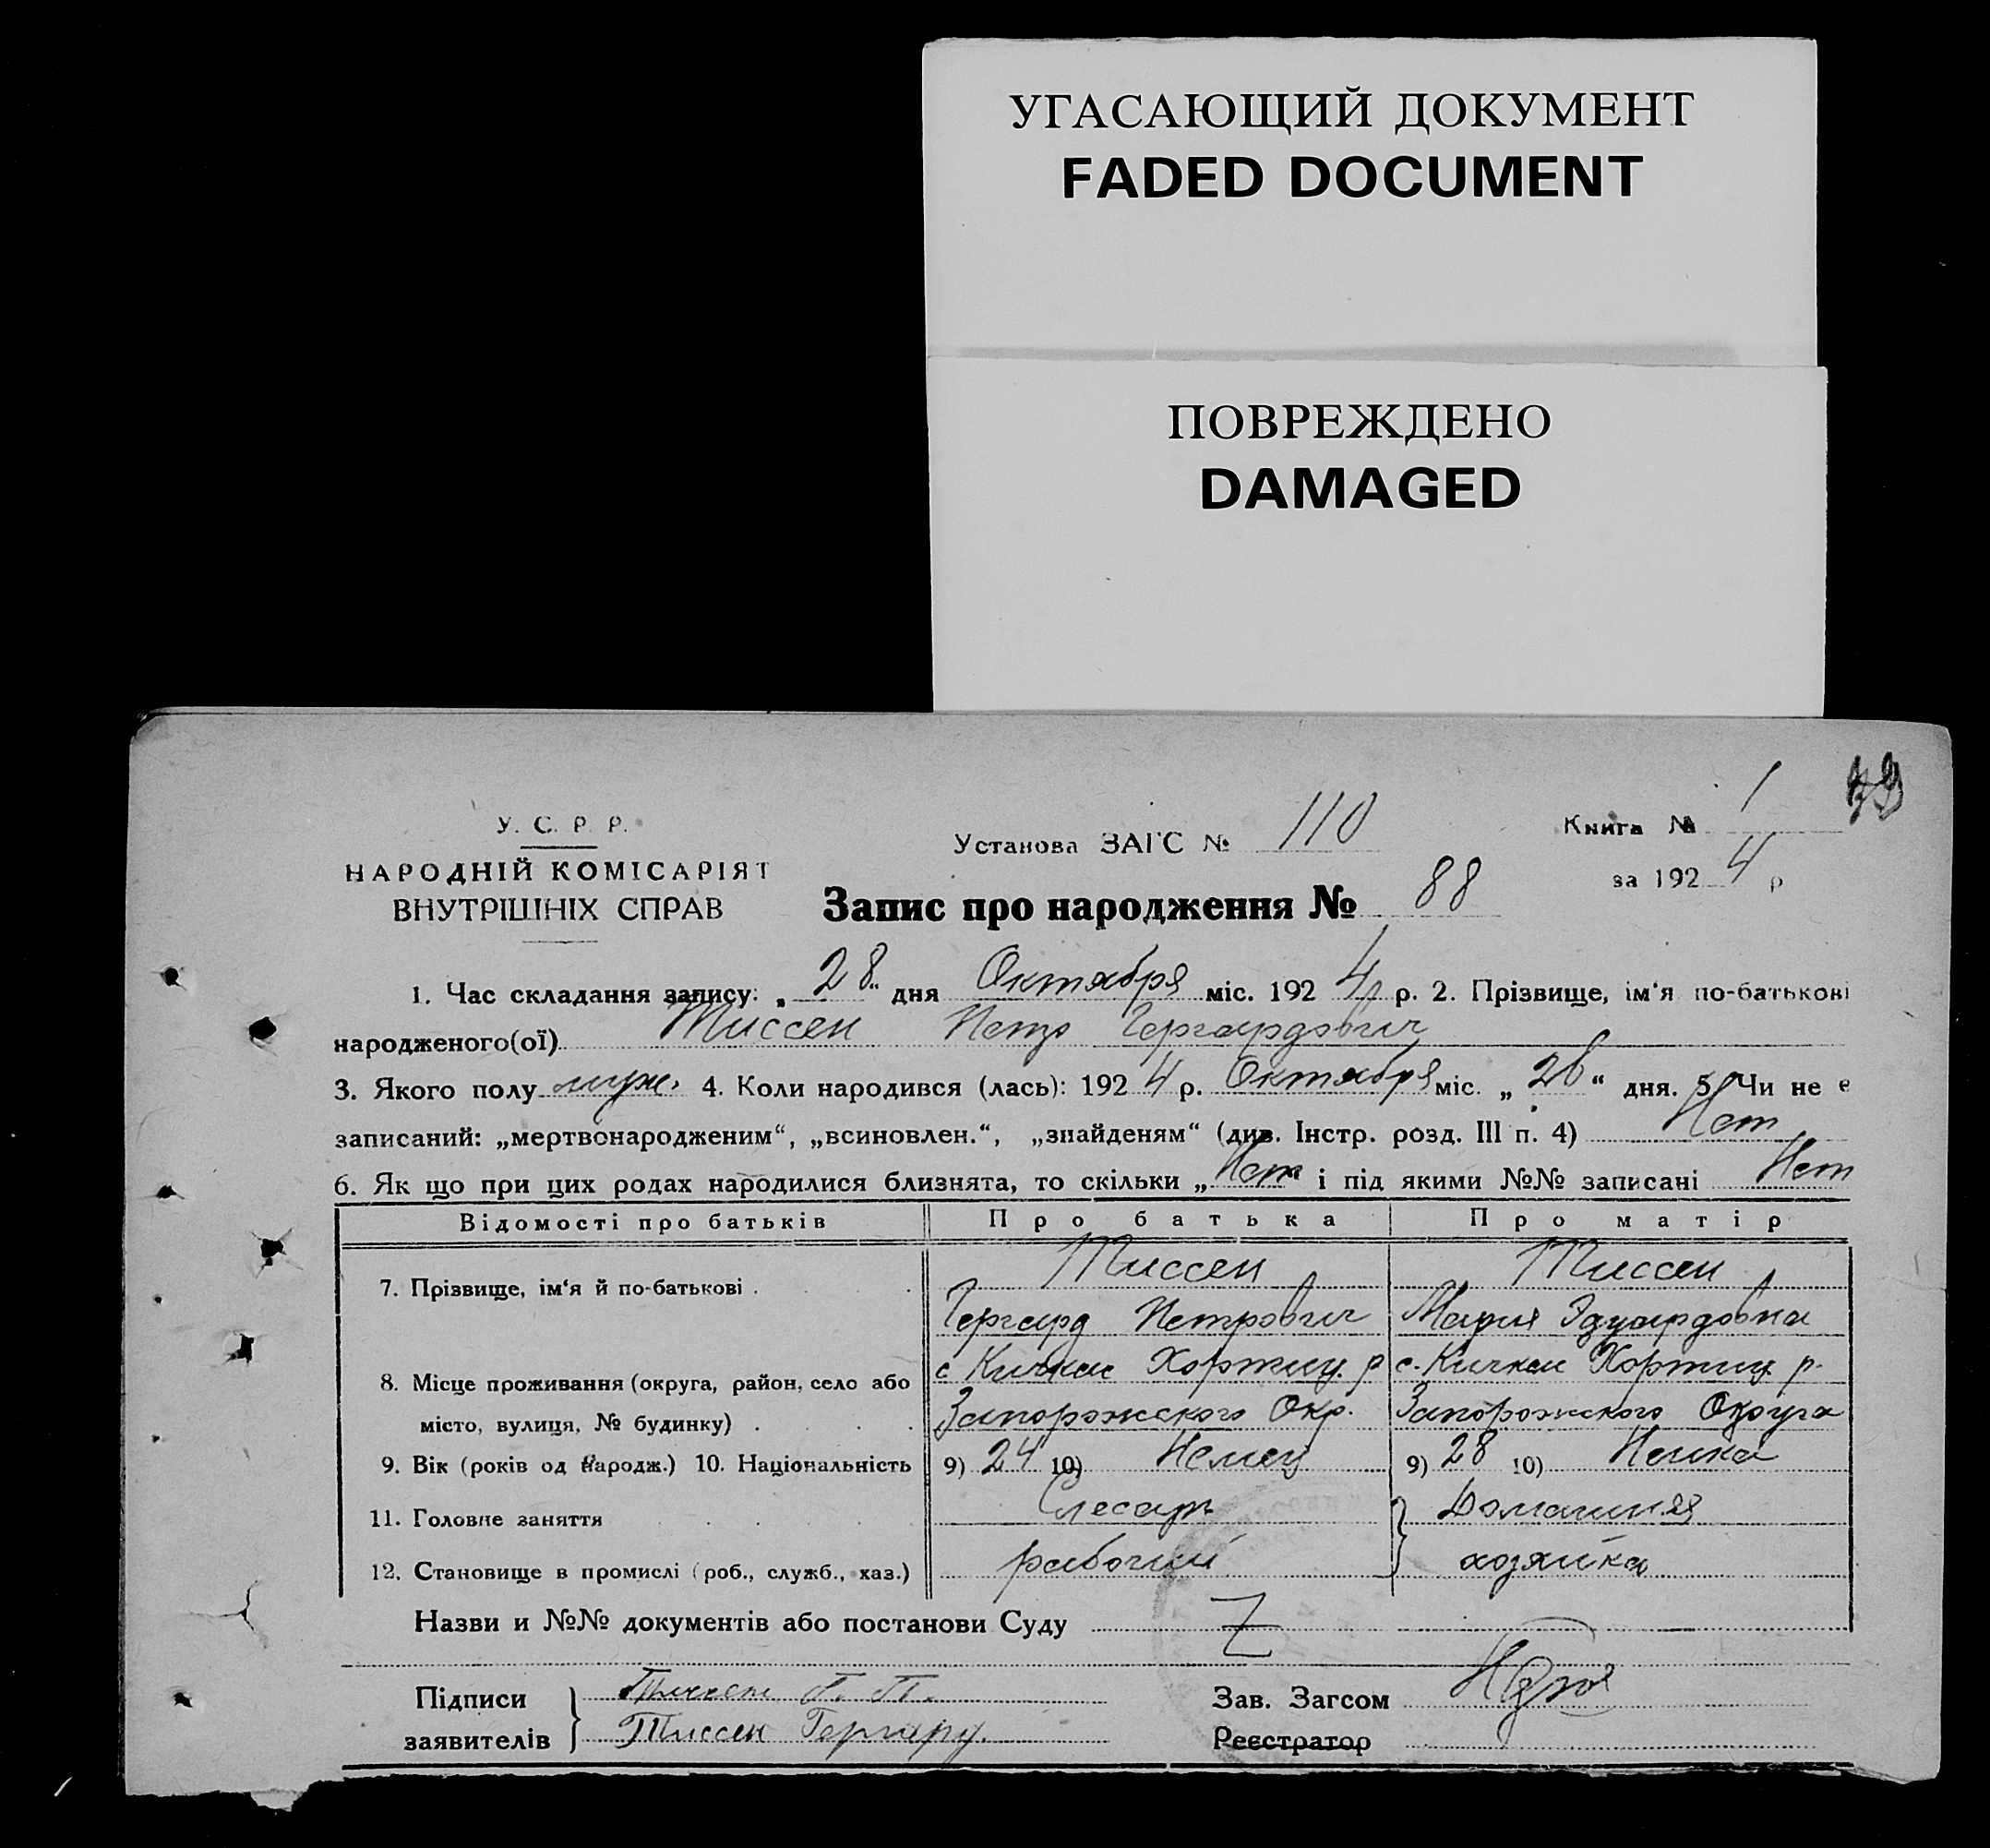 УГАСАЮЩИЙ ДОКУМЕНТ
FADED DOCUMENT
ПОВРЕЖДЕНО
DAMAGED
У. С. Р. Р.
НАРОДНІЙ КОМІСАРІЯТ
ВНУТРІШНІХ СПРАВ
Установа ЗАГС № 110
Книга № 1
за 1924 р
Запис про народження № 88
1. Час складання запису: „28“ дня Октября міс. 1924 р. 2. Прізвище, ім‘я по-батькові
народженого(ої) Тиссен Петр Гергардович
3. Якого полу муж. 4. Коли народився (лась): 1924 р. Октября міс. „26“ дня. 5. Чи не є
записаний: „мертвонародженим“, „всиновлен.“, „знайденям“ (див. Інстр. розд. III п. 4) Нет
6. Як що при цих родах народилися близнята, то скільки „Нет“ і під якими №№ записані Нет
Відомості про батьків Про батька Про матір
7. Прізвище, ім‘я й по-батькові . Тиссен Тиссен
Гергард Петрович Мария Эдуардовна
8. Місце проживання (округа, район, село або с Кичкас Хортиц. р с. Кичкас Хортиц. р.
місто, вулиця, № будинку) . Запорожского Окр. Запорожского Округа
9. Вік (років од народж.) 10. Національність 9) 24 10) Немец 9) 28 10) Немка
11. Головне заняття Слесарь Домашняя
12. Становище в промислі (роб., служб., хаз.) рабочий хозяйка
Назви и №№ документів або постанови Суду Z
Підписи Тиссен Г. П. Зав. Загсом
заявителів Тиссен Гергард. Реєстратор